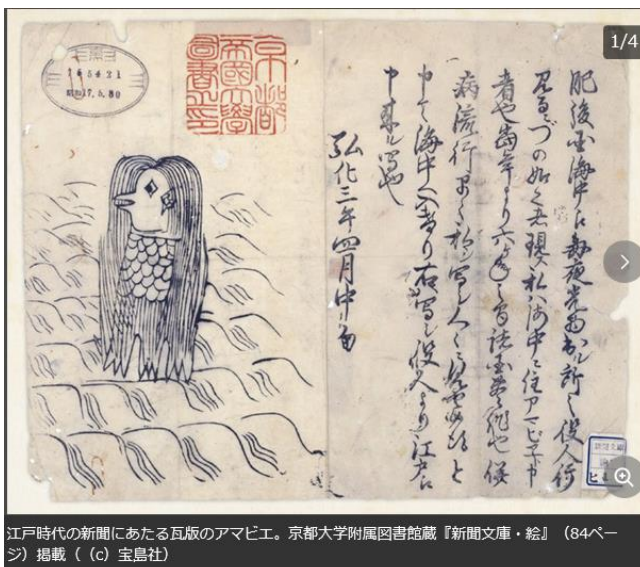 1/4
京都
帝國大學
圖書之印
肥後国海中え毎夜光物出ル所之役人行
見るニづの如く者現ス私ハ海中ニ住アマビヱト申
者也当年より六ヶ年之間諸国豊作也併
病流行早々私ヲ写シ人々ニ見セ候得と
申て海中へ入けり右写シ役人より江戸え
申来ル写也
弘化三年四月中旬
江戸時代の新聞にあたる瓦版のアマビエ。京都大学附属図書館蔵『新聞文庫・絵』（84ペー
ジ）掲載（（c）宝島社）